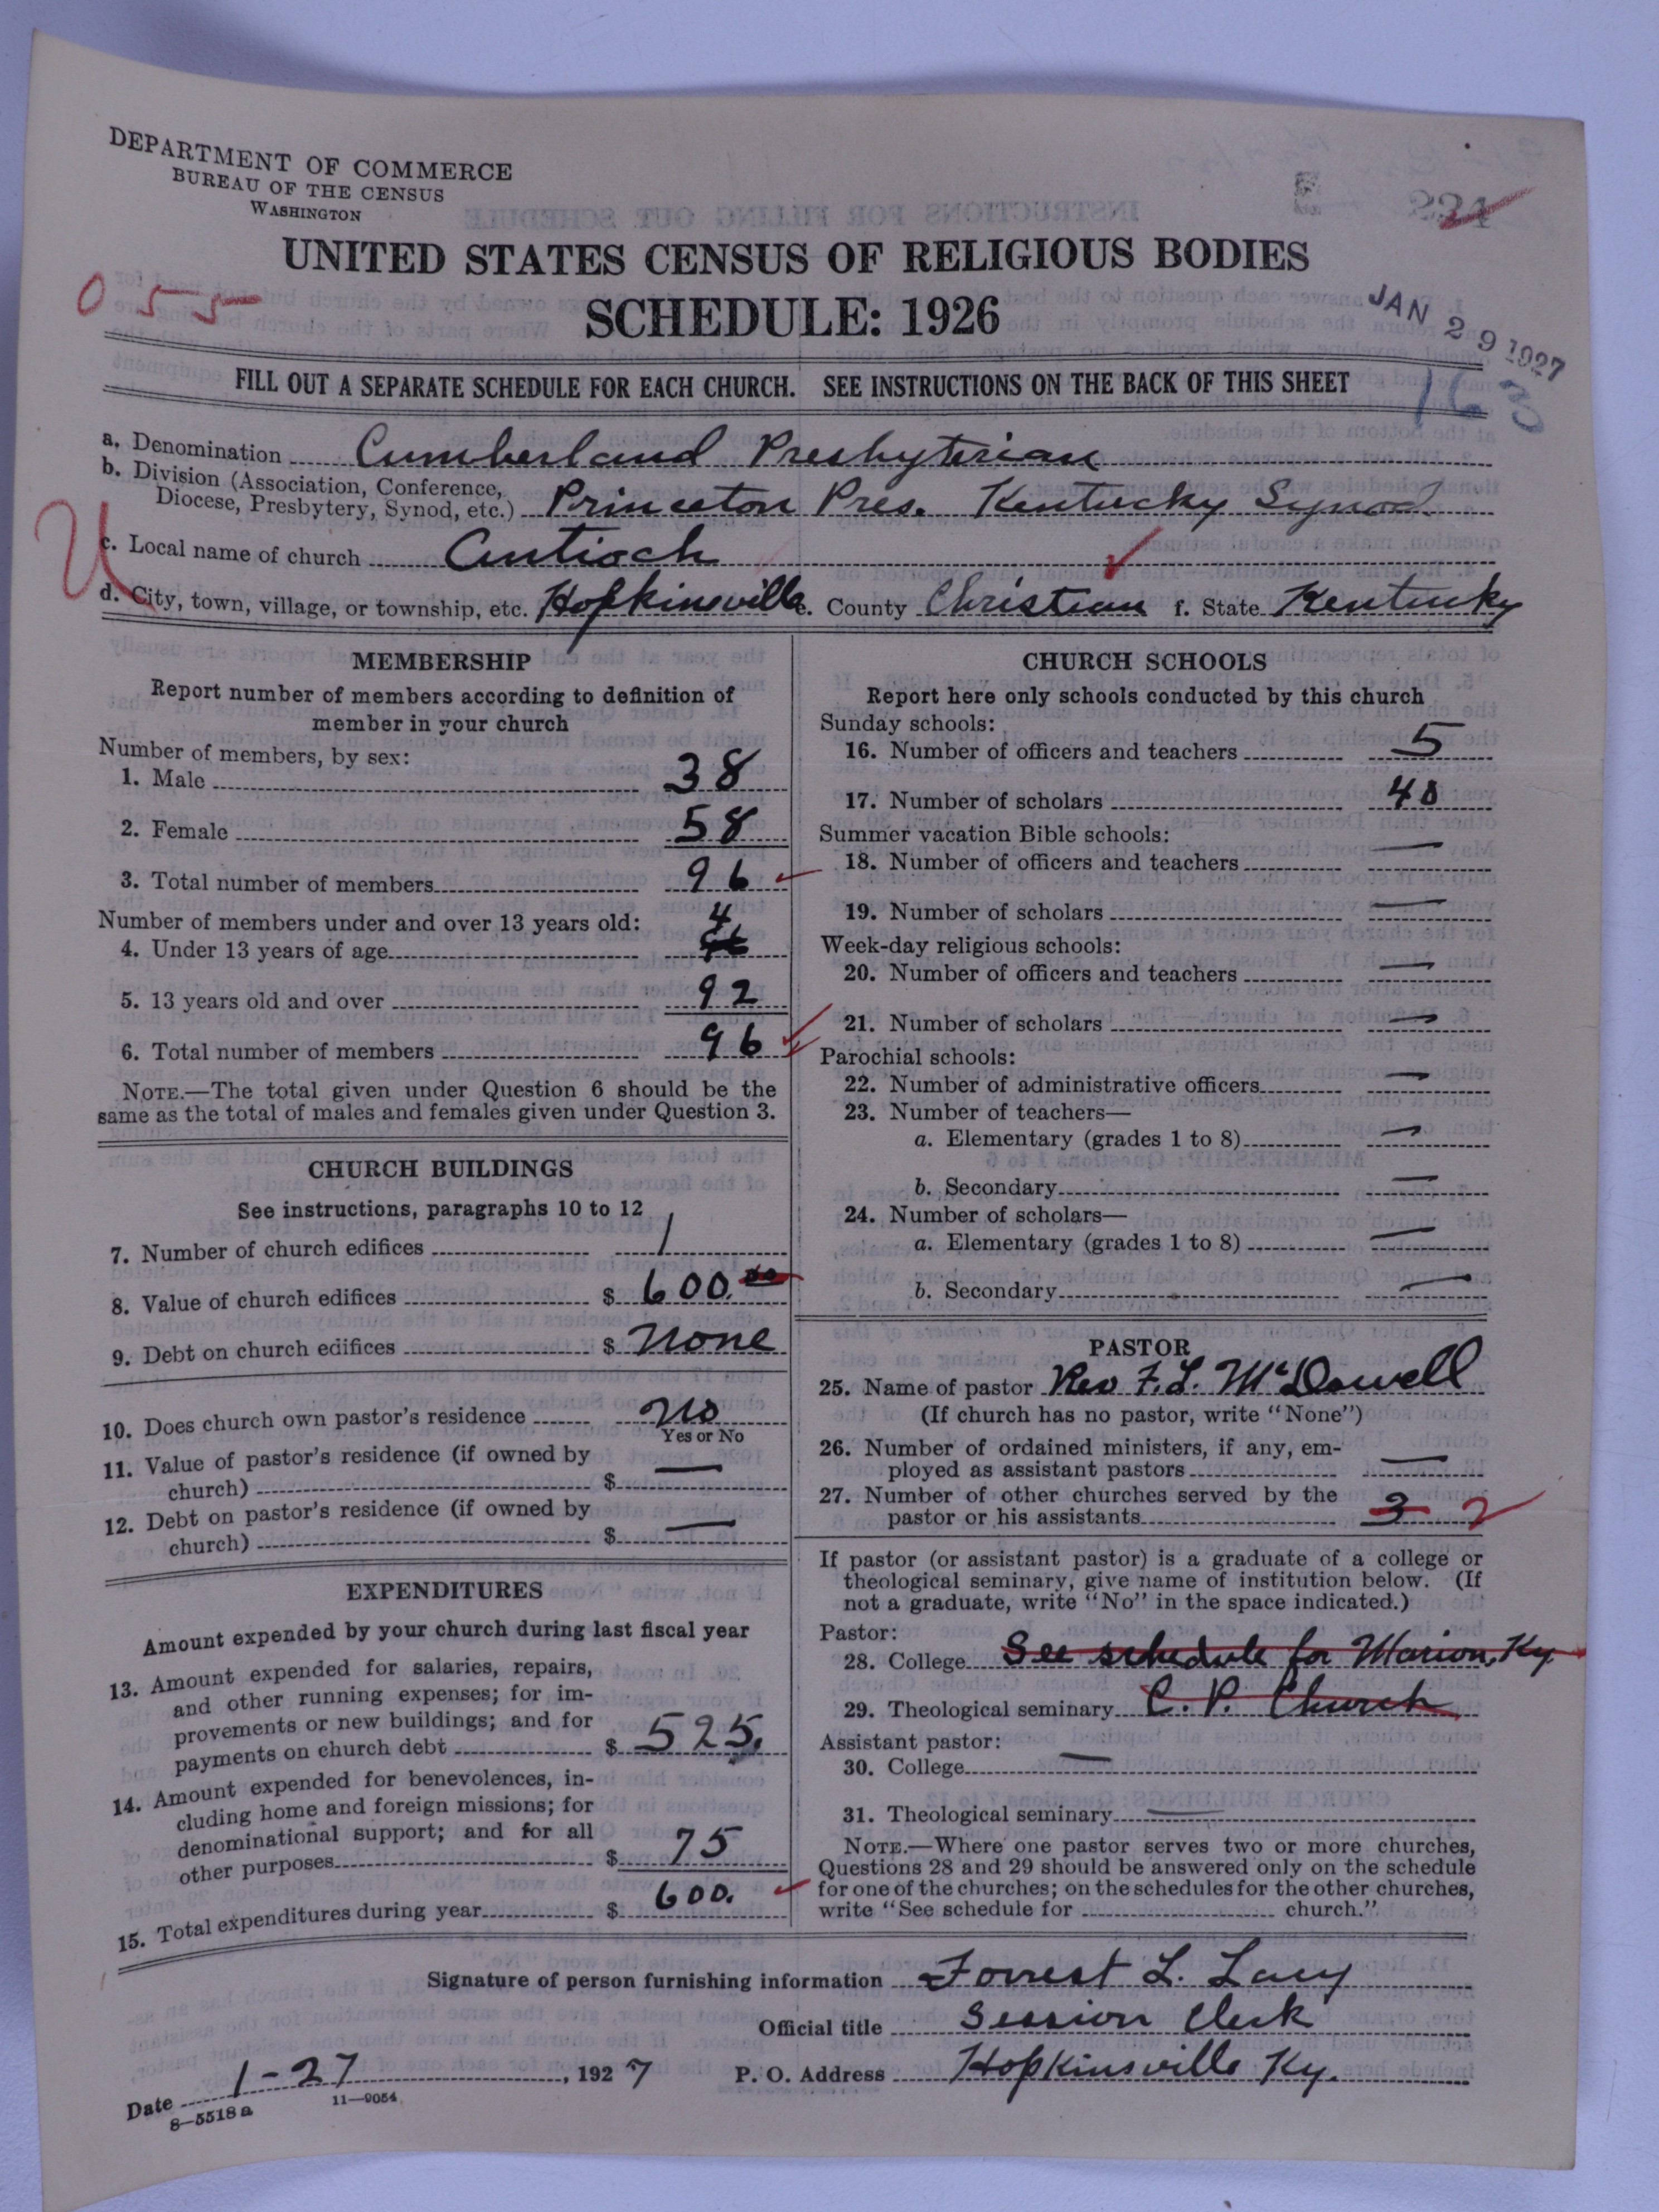 DEPARTMENT OF COMMERCE
BUREAU OF THE CENSUS
WASHINGTON
234
UNITED STATES CENSUS OF RELIGIOUS BODIES
055
SCHEDULE: 1926
JAN 29 1927
FILL OUT A SEPARATE SCHEDULE FOR EACH CHURCH. SEE INSTRUCTIONS ON THE BACK OF THIS SHEET
a. Denomination Cumberland Presbyterian
b. Division (Association, Conference, Diocese, Presbytery, Synod, etc.) Princeton Pres. Kentucky Synod
c. Local name of church Antioch
d. City, town, village, or township, etc. Hopkinsville e. County Christian f. State Kentucky
MEMBERSHIP
Report number of members according to definition of
member in your church
Number of members, by sex:
1. Male 38
2. Female 58
3. Total number of members 96
Number of members under and over 13 years old:
4. Under 13 years of age 4
5. 13 years old and over 92
6. Total number of members 96
NOTE.—The total given under Question 6 should be the
same as the total of males and females given under Question 3.
CHURCH BUILDINGS
See instructions, paragraphs 10 to 12
7. Number of church edifices 1
8. Value of church edifices $ 600.00
9. Debt on church edifices $ None
10. Does church own pastor's residence No
Yes or No
11. Value of pastor's residence (if owned by
church) $ —
12. Debt on pastor's residence (if owned by
church) $ —
EXPENDITURES
Amount expended by your church during last fiscal year
13. Amount expended for salaries, repairs,
and other running expenses; for im-
provements or new buildings; and for
payments on church debt $ 525.
14. Amount expended for benevolences, in-
cluding home and foreign missions; for
denominational support; and for all
other purposes $ 75
15. Total expenditures during year $ 600.
CHURCH SCHOOLS
Report here only schools conducted by this church
Sunday schools:
16. Number of officers and teachers 5
17. Number of scholars 40
Summer vacation Bible schools:
18. Number of officers and teachers —
19. Number of scholars —
Week-day religious schools:
20. Number of officers and teachers —
21. Number of scholars —
Parochial schools:
22. Number of administrative officers —
23. Number of teachers—
a. Elementary (grades 1 to 8) —
b. Secondary —
24. Number of scholars—
a. Elementary (grades 1 to 8) —
b. Secondary —
PASTOR
25. Name of pastor Rev F. L. McDowell
(If church has no pastor, write "None")
26. Number of ordained ministers, if any, em-
ployed as assistant pastors —
27. Number of other churches served by the
pastor or his assistants 3 2
If pastor (or assistant pastor) is a graduate of a college or
theological seminary, give name of institution below. (If
not a graduate, write "No" in the space indicated.)
Pastor:
28. College See schedule for Marion, Ky.
29. Theological seminary C. P. Church
Assistant pastor:
30. College —
31. Theological seminary —
NOTE.—Where one pastor serves two or more churches,
Questions 28 and 29 should be answered only on the schedule
for one of the churches; on the schedules for the other churches,
write "See schedule for church."
Signature of person furnishing information Forrest L. Lacy
Official title Session Clerk
Date 1-27, 1927 P. O. Address Hopkinsville Ky.
8—5518a 11—9054